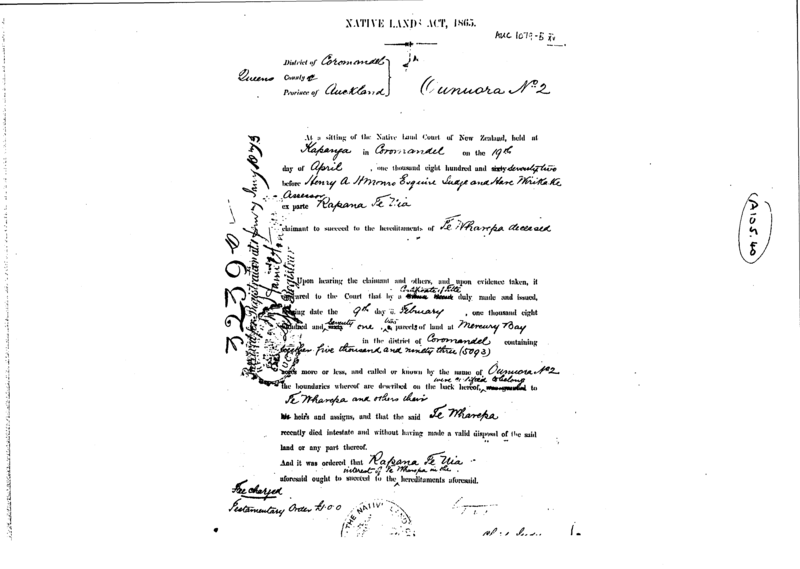 NATIVE LANDS ACT, 1865.
AUC 1079-5
District of Coromandel
Queens County
Province of Auckland
Ounuora No 2
At a sitting of the Native Land Court of New Zealand, held at
Kapanga in Coromandel on the 19th
day of April, one thousand eight hundred and sixty seventy two
before Henry A H Monro Esquire Judge and Hare Wirikake
Assessor
ex parte Rapana Te Uia
claimant to succeed to the hereditaments of Te Wharepa deceased
Upon hearing the claimant and others, and upon evidence taken, it
Certificate of Title
appeared to the Court that by a duly made and issued,
bearing date the 9th day of February, one thousand eight
hundred and seventy one, parcels of land at Mercury Bay
in the district of Coromandel containing
together five thousand and ninety three (5093)
acres more or less, and called or known by the name of Ounuora No 2
were or belong
the boundaries whereof are described on the back hereof, to
Te Wharepa and others their
his heirs and assigns, and that the said Te Wharepa
recently died intestate and without having made a valid disposal of the said
land or any part thereof.
And it was ordered that Rapana Te Uia
interest of Te Wharepa in the
aforesaid ought to succeed to the hereditaments aforesaid.
Fee charged
Testamentary Order £1.0.0
THE NATIVE LAND
3239
Registrar
A105.40